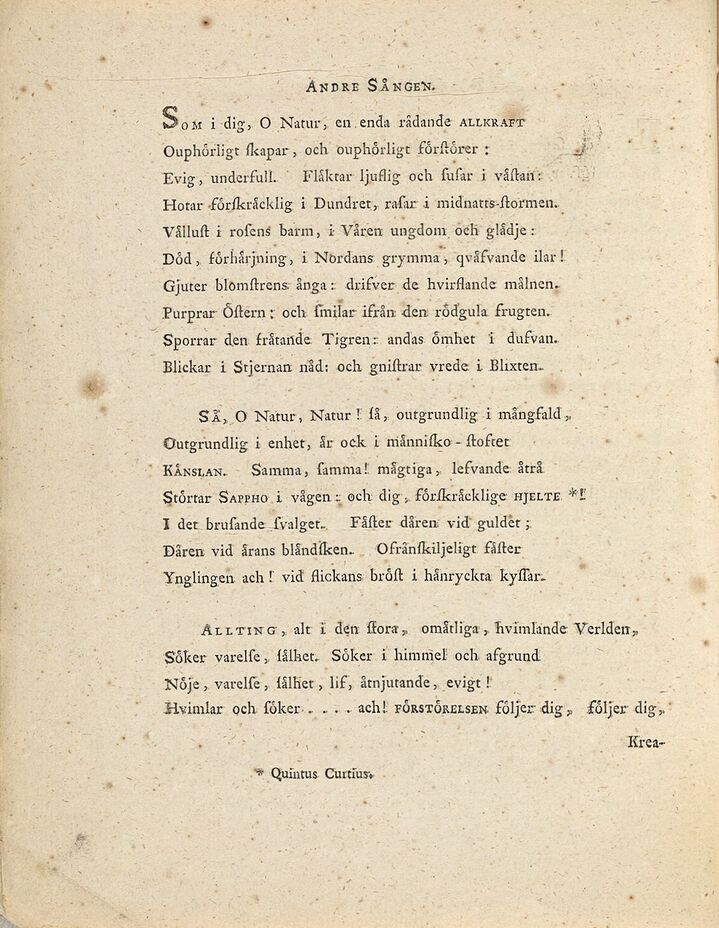 ANDRE SÅNGEN.
SOM i dig, O Natur, en enda rådande ALLKRAFT
Ouphörligt ſkapar, och ouphörligt förſtörer:
Evig, underfull. Fläktar ljuflig och ſuſar i väſtan:
Hotar förſkräcklig i Dundret, raſar i midnatts-ſtormen.
Välluſt i roſens barm, i Våren ungdom och glädje:
Död, förhärjning, i Nordans grymma, qväfvande ilar!
Gjuter blomſtrens ånga: drifver de hvirflande målnen.
Purprar Öſtern: och ſmilar ifrån den rödgula frugten.
Sporrar den frätande Tigren: andas ömhet i dufvan.
Blickar i Stjernan nåd: och gniſtrar vrede i Blixten.
SÅ, O Natur, Natur! ſå, outgrundlig i mångfald,
Outgrundlig i enhet, är ock i männiſko-ſtoftet
KÄNSLAN. Samma, ſamma! mägtiga, lefvande åtrå
Störtar SAPPHO i vågen: och dig, förſkräcklige HJELTE *!
I det bruſande ſvalget. Fäſter dåren vid guldet;
Dåren vid ärans bländſken. Ofrånſkiljeligt fäſter
Ynglingen ach! vid flickans bröſt i hänryckta kyſſar.
ALLTING, alt i den ſtora, omätliga, hvimlande Verlden,
Söker varelſe, ſälhet. Söker i himmel och afgrund
Nöje, varelſe, ſälhet, lif, åtnjutande, evigt!
Hvimlar och ſöker . . . . ach! FÖRSTÖRELSEN följer dig, följer dig,
Krea-
* Quintus Curtius.